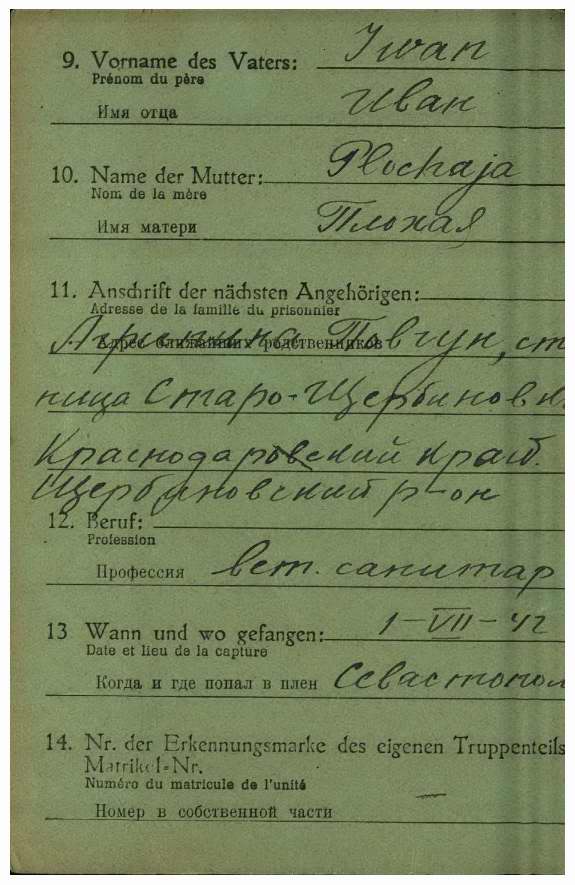 9. Vorname des Vaters: Iwan
Prénom du père
Имя отца Иван
10. Name der Mutter: Plochaja
Nom de la mère
Имя матери Плохая
11. Anschrift der nächsten Angehörigen:
Adresse de la famille du prisonnier
Адрес ближайших родственников
Агрипина Повгун, ст
ница Старо-Щербиновк
Краснодаровский край.
Щербиновский р-он
12. Beruf:
Profession
Профессия вет. санитар
13 Wann und wo gefangen: 1-VII-42
Date et lieu de la capture
Когда и где попал в плен Севастопол
14. Nr. der Erkennungsmarke des eigenen Truppenteils
Matrikel=Nr.
Numéro du matricule de l'unité
Номер в собственной части —